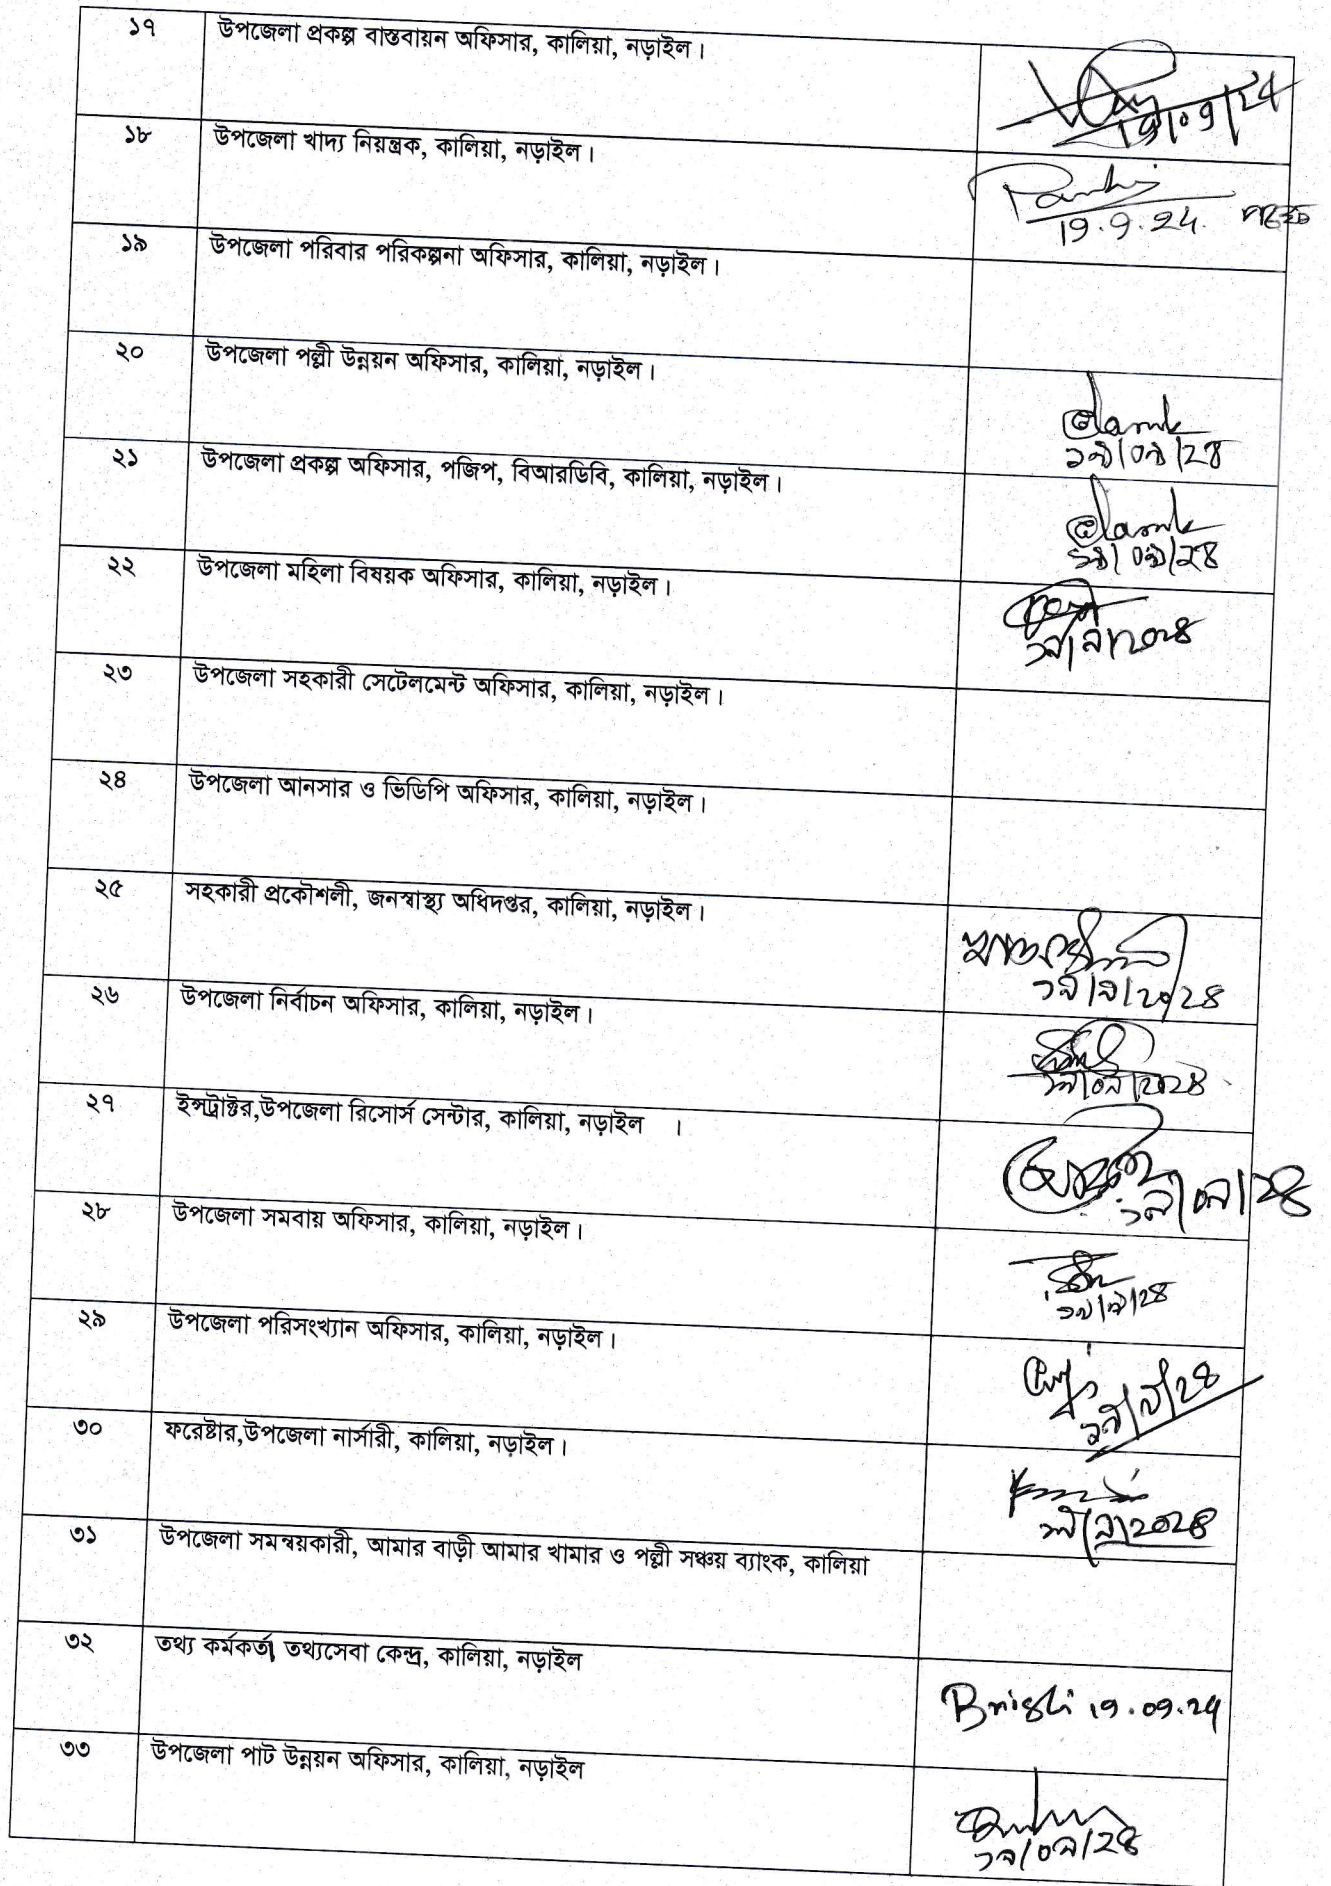 ১৭ উপজেলা প্রকল্প বাস্তবায়ন অফিসার, কালিয়া, নড়াইল।
19/09/24
১৮ উপজেলা খাদ্য নিয়ন্ত্রক, কালিয়া, নড়াইল।
19.9.24
১৯ উপজেলা পরিবার পরিকল্পনা অফিসার, কালিয়া, নড়াইল।
২০ উপজেলা পল্লী উন্নয়ন অফিসার, কালিয়া, নড়াইল।
১৯/০৯/২৪
২১ উপজেলা প্রকল্প অফিসার, পজিপ, বিআরডিবি, কালিয়া, নড়াইল।
১৯/০৯/২৪
২২ উপজেলা মহিলা বিষয়ক অফিসার, কালিয়া, নড়াইল।
১৯/৯/২০২৪
২৩ উপজেলা সহকারী সেটেলমেন্ট অফিসার, কালিয়া, নড়াইল।
২৪ উপজেলা আনসার ও ভিডিপি অফিসার, কালিয়া, নড়াইল।
২৫ সহকারী প্রকৌশলী, জনস্বাস্থ্য অধিদপ্তর, কালিয়া, নড়াইল।
১৯/৯/২০২৪
২৬ উপজেলা নির্বাচন অফিসার, কালিয়া, নড়াইল।
১৯/০৯/২০২৪
২৭ ইন্সট্রাক্টর,উপজেলা রিসোর্স সেন্টার, কালিয়া, নড়াইল ।
১৯/০৯/২৪
২৮ উপজেলা সমবায় অফিসার, কালিয়া, নড়াইল।
১৯/৯/২৪
২৯ উপজেলা পরিসংখ্যান অফিসার, কালিয়া, নড়াইল।
১৯/৯/২৪
৩০ ফরেষ্টার,উপজেলা নার্সারী, কালিয়া, নড়াইল।
১৯/৯/২০২৪
৩১ উপজেলা সমন্বয়কারী, আমার বাড়ী আমার খামার ও পল্লী সঞ্চয় ব্যাংক, কালিয়া
৩২ তথ্য কর্মকর্তা তথ্যসেবা কেন্দ্র, কালিয়া, নড়াইল
19.09.24
৩৩ উপজেলা পাট উন্নয়ন অফিসার, কালিয়া, নড়াইল
১৯/০৯/২৪